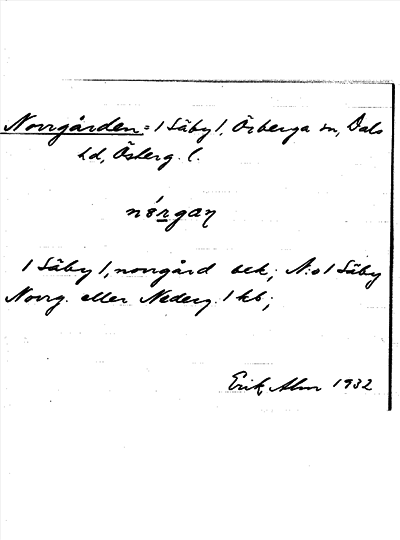 Norrgården = 1 Säby 1, Örberga sn, Dals
hd, Österg. l.
nórgaꞃ
1 Säby 1, norrgård bek; N:o 1 Säby
Norrg. eller Nederg. 1 kb;
Erik Alm 1932